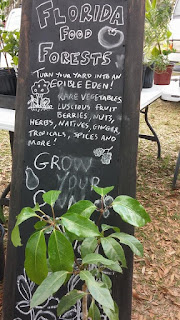 FLORIDA
FOOD
FORESTS
TURN YOUR YARD INTO AN
EDIBLE EDEN!
RARE VEGETABLES
LUSCIOUS FRUIT
BERRIES, NUTS,
HERBS, NATIVES, GINGER,
TROPICALS, SPICES AND
MORE!
GROW
YOUR